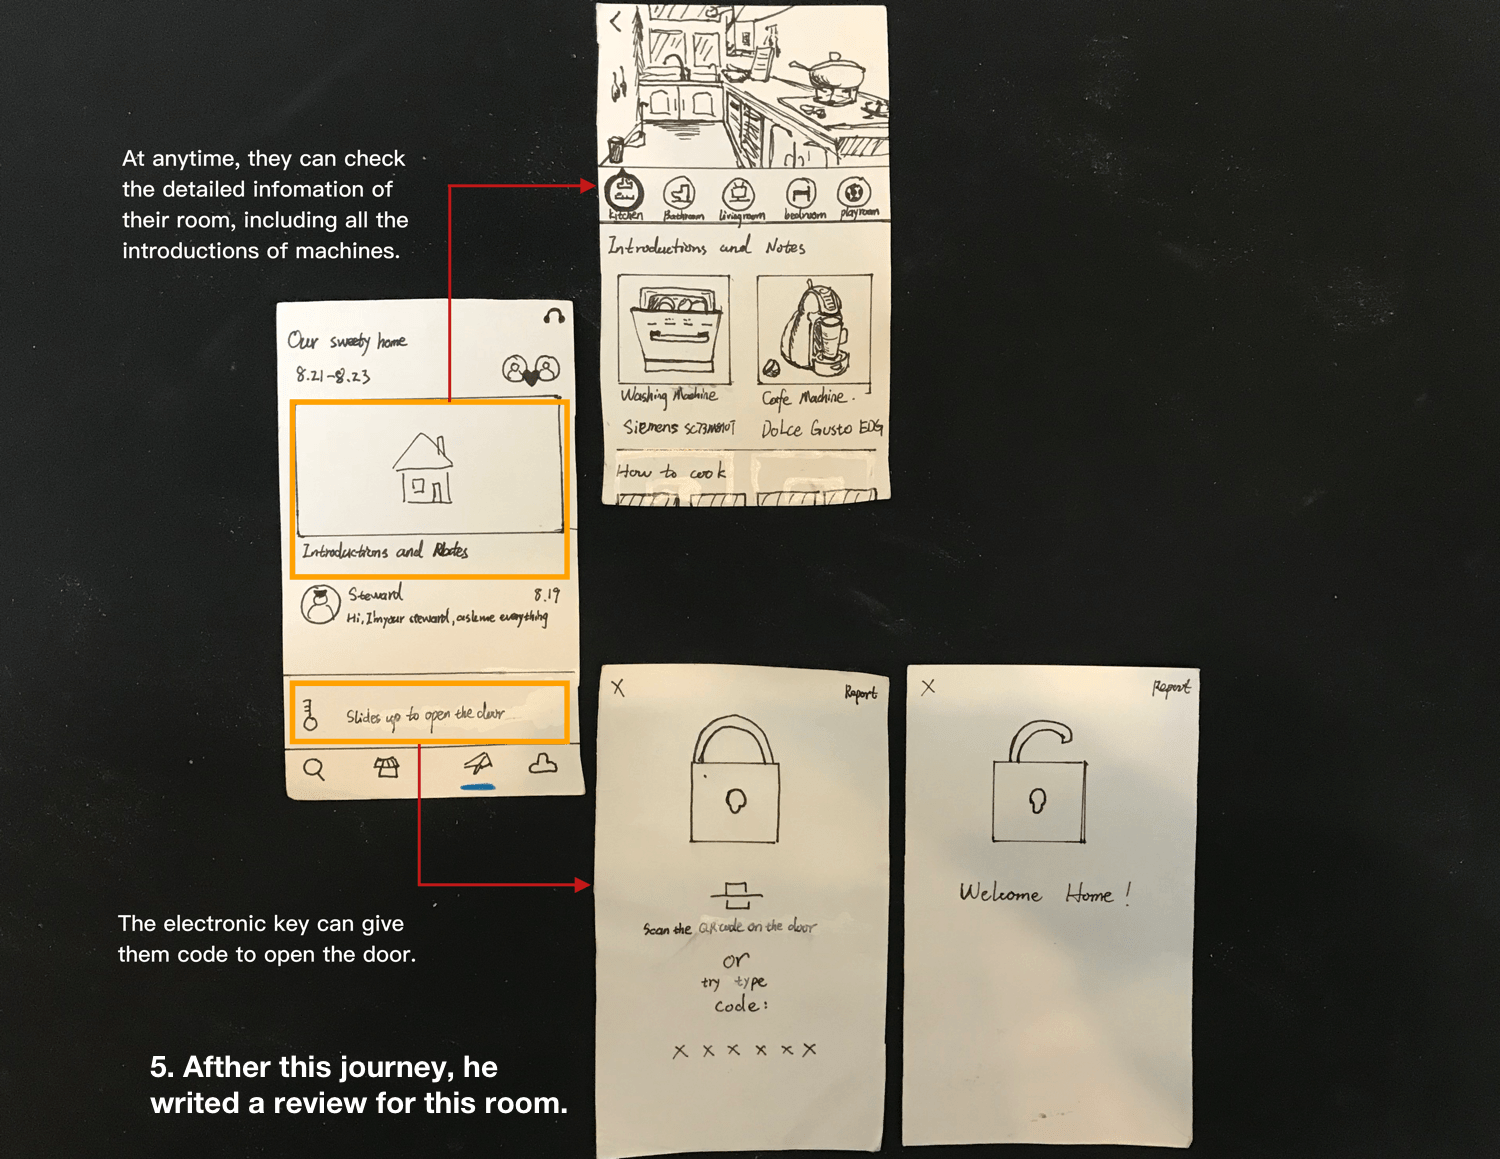 At anytime, they can check
the detailed infomation of
their room, including all the
introductions of machines.
Kitchen Bathroom Livingroom bedroom playroom
Introductions and Notes
Washing Machine
Siemens
Cafe Machine.
Dolce Gusto EDG
How to cook
Our sweety home
8.21-8.23
Introductions and Notes
Steward 8.19
Hi, I'm your steward, ask me everything
Slides up to open the door
The electronic key can give
them code to open the door.
X Report
Scan the QR code on the door
or
try type
code:
X X X X X X
X Report
Welcome Home!
5. Afther this journey, he
writed a review for this room.